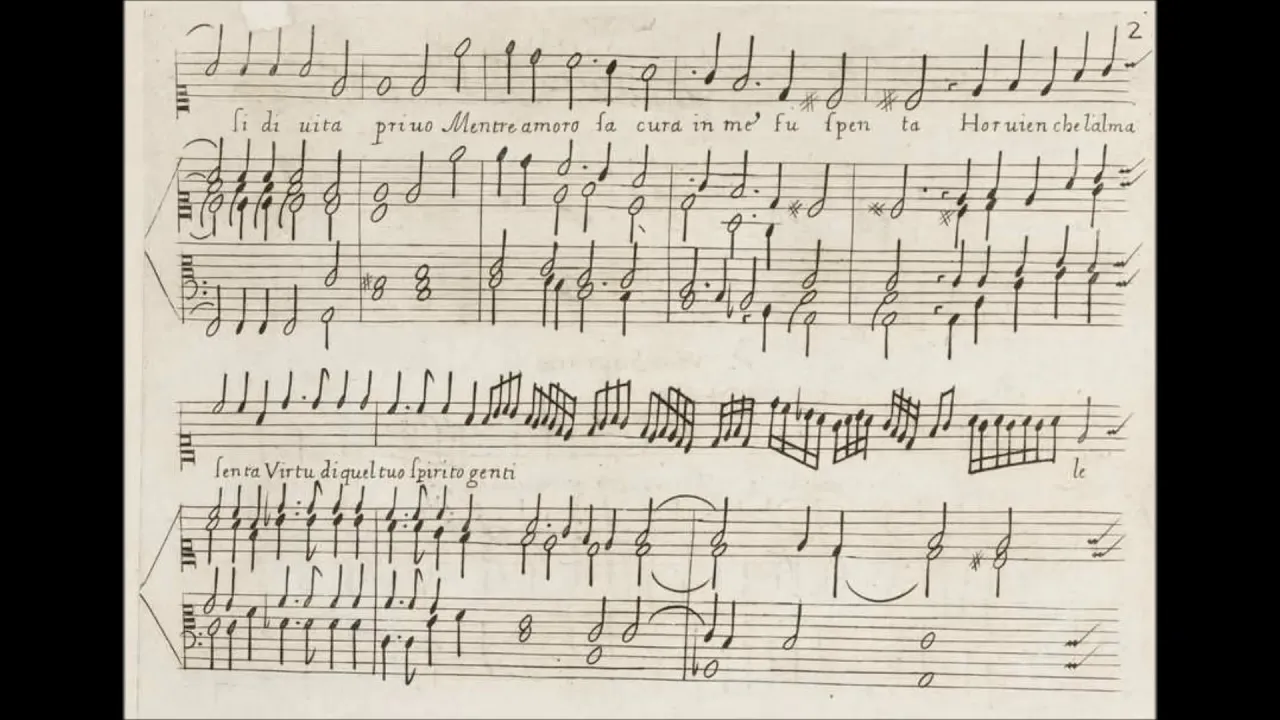 2
ſi di uita priuo Mentre amoro ſa cura in me' fu ſpen ta Hor uien che l'alma
ſenta Virtu di quel tuo ſpirito genti le